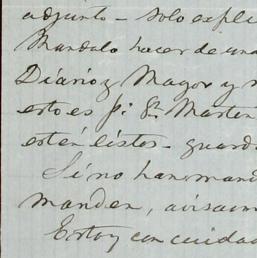 adjunto - solo expli
Mandalo hacer de una
Diário y Mayor y
esto es pi Sr. Martin
estén listos - guard
Si no han mand
manden, avisam
Estoy con cuidad